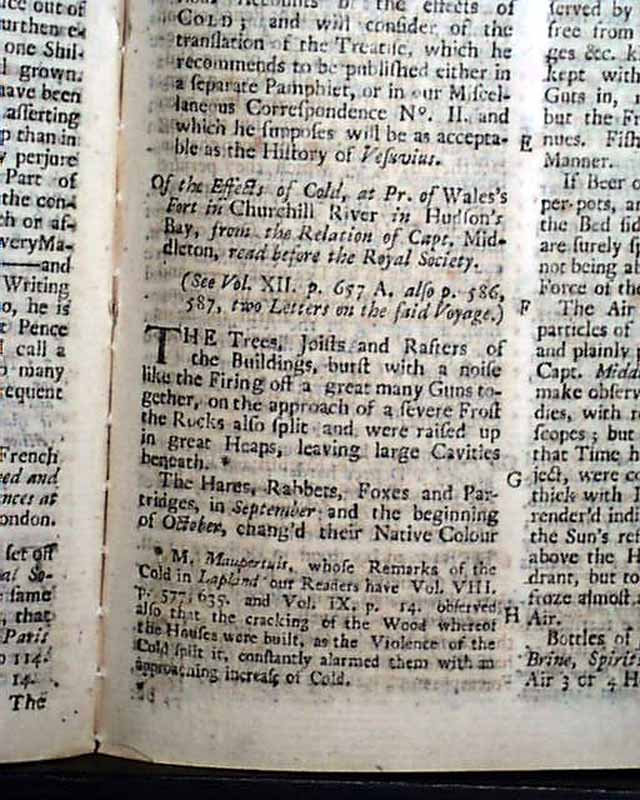 uce out of
urther
one Shil-
grown.
have been
asserting
p than in
perjure
Part of
the con-
ch or af-
veryMa-
—and
Writing
o, he is
t Pence
call a
many
requent
French
eed and
ances at
ondon.
set off
al So-
same
that
Paris
114.
14.
The
Accounts of the effects of
COLD; and will consider of the
translation of the Treatise, which he
recommends to be published either in
a separate Pamphlet, or in our Miscel-
laneous Correspondence No. II. and
which he supposes will be as accepta-
ble as the History of Vesuvius.
Of the Effects of Cold, at Pr. of Wales's
Fort in Churchill River in Hudson's
Bay, from the Relation of Capt. Mid-
dleton, read before the Royal Society.
(See Vol. XII. p. 657 A. also p. 586,
587, two Letters on the said Voyage.)
THE Trees, Joists and Rafters of
the Buildings, burst with a noise
like the Firing off a great many Guns to-
gether, on the approach of a severe Frost
the Rocks also split and were raised up
in great Heaps, leaving large Cavities
beneath. *
The Hares, Rabbets, Foxes and Par-
tridges, in September and the beginning
of October, chang'd their Native Colour
* M. Maupertuis, whose Remarks of the
Cold in Lapland our Readers have Vol. VIII.
p. 577, 635. and Vol. IX. p. 14. observed,
also that the cracking of the Wood whereof
the Houses were built, as the Violence of the
Cold split it, constantly alarmed them with an
approaching increase of Cold.
E
F
G
H
served by
free from
ges &c. k
kept with
Guts in,
but the Fr
nues. Fish
Manner.
If Beer o
per-pots, a
the Bed sid
are surely sp
not being a
Force of the
The Air
particles of
and plainly
Capt. Midd
make observ
dies, with r
scopes; but
that Time h
ject, were c
thick with
render'd indi
the Sun's ref
above the H
drant, but to
froze almost
Air.
Bottles of
Brine, Spirit
Air 3 or 4 H